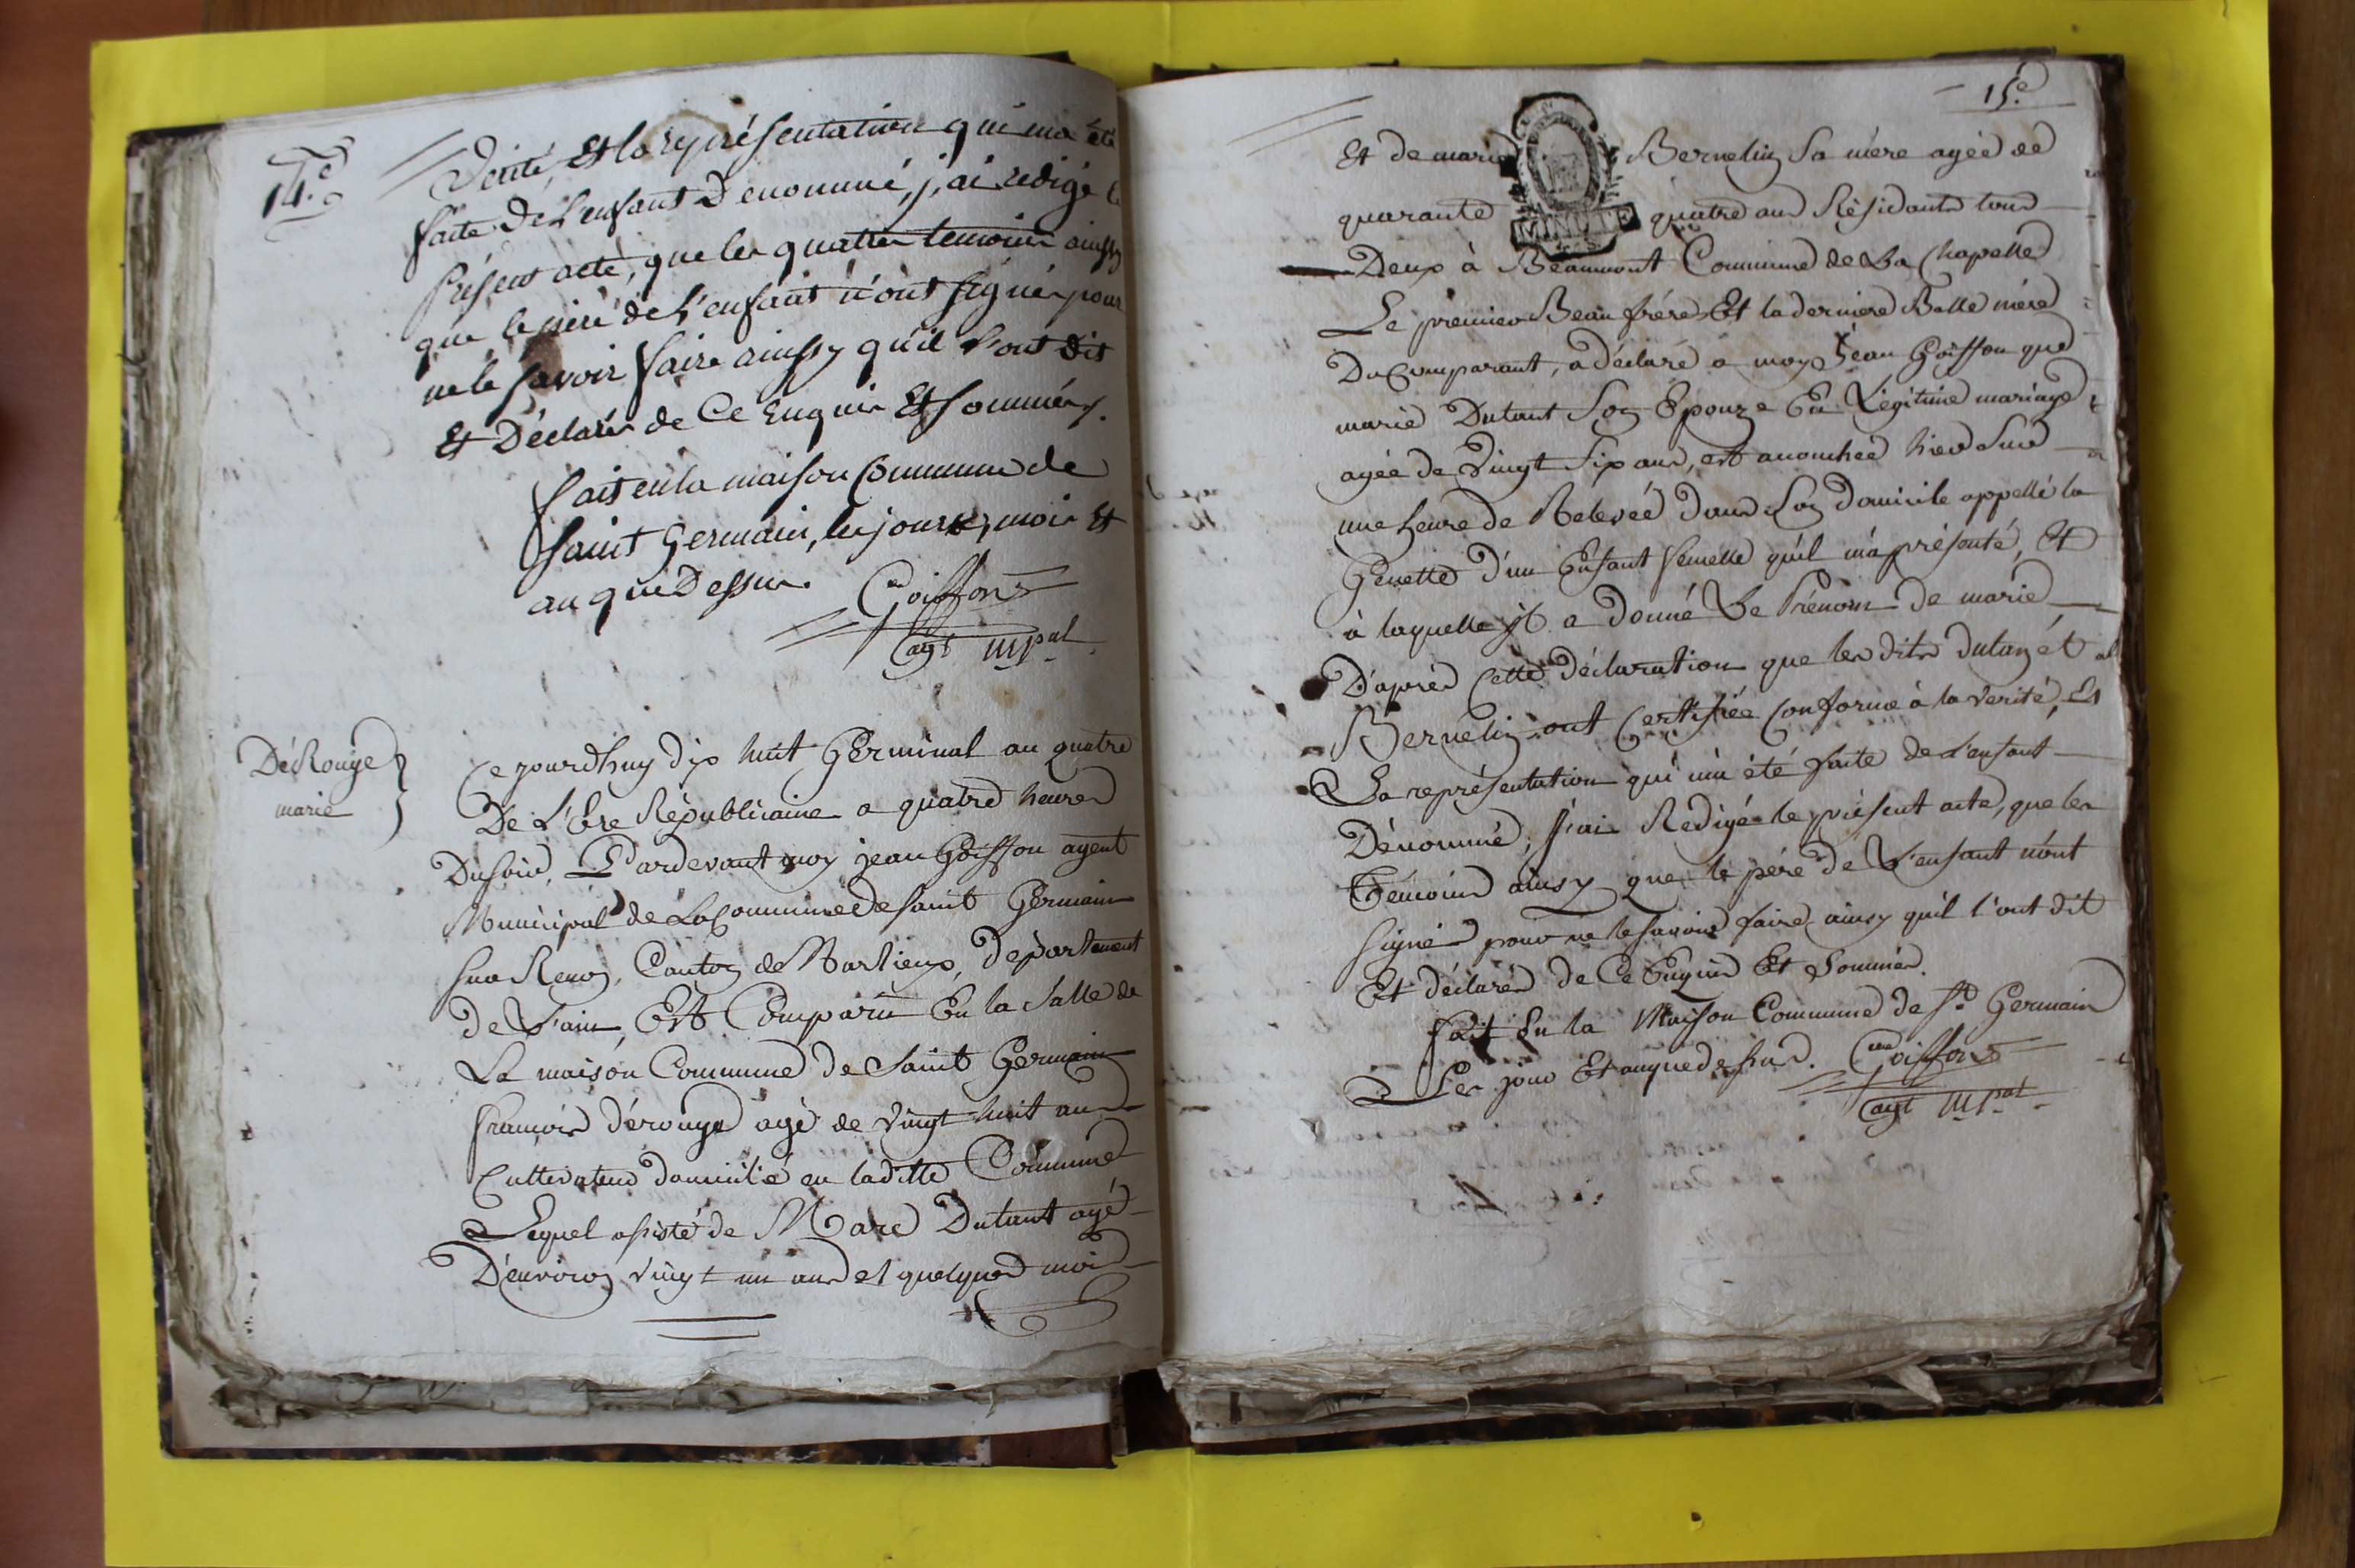 14.e
Verité, Et la représentation qui m'a été
faite De L'enfant Denommé, j'ai redigé le
présent acte, que les quattre temoins ainssy
que le père de L'enfant n'ont signés pour
ne le savoir faire ainssy qu'il L'ont dit
Et Déclarés de Ce Enquis Et sommés.
fait en la maison Commune de
saint Germain, les jours, mois Et
an que Dessus.
Goiffon
agt mpal.
DéRouge
marie
Cejourdhuy dix huit Germinal an quatre
De L'Ere Républicaine a quatre heures
Du soir, Pardevant moy jean Goiffon agent
Municipal de La Commune de saint Germain
sur Renon, Canton de Marlieux, Département
de L'ain, Est Comparu En la Salle de
La maison Commune de Saint Germain
francois dérouge agé de vingt huit ans
Cultivateur domicilié en laditte Commune
Lequel assisté de Marc Dutant agé
D'environ vingt un ans et quelques mois
15.e
Et de marie Bernelin Sa mère agée de
quarante quatre ans Résidants tous
MINUTE
Deux à Beaumont Commune de La Chapelle
Le premier Beau frére Et la derniere Belle mére
Du Comparant, a déclaré a moy Jean Goiffon que
marie Dutant Son Epouze En Légitime mariage
agée de vingt Six ans, est acouchée hier Sur
une heure de Relevée dans Son domicile appellé la
Genette d'un Enfant femelle qu'il m'a présenté, Et
à laquelle il a donné Le Prénom de marie,
D'après Cette déclaration que les dits dutan et
Bernelin ont Certifiée Conforme à la verité, Et
La représentation qui m'a été faite de L'enfant
Dénommé, j'ai Redigé le présent acte, que les
Témoins ainsy que le pére de L'enfant n'ont
signé pour ne le savoir faire ainsy qu'il l'ont dit
Et déclarés de Ce Enquis Et Sommés.
fait En la Maison Commune de St Germain
Les jour Et an que dessus. Goiffon
agt mpal.